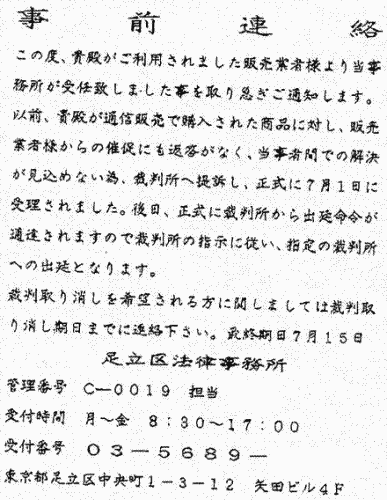 事前連絡
この度、貴殿がご利用されました販売業者様より当事
務所が受任致しました事を取り急ぎご通知します。
以前、貴殿が通信販売で購入された商品に対し、販売
業者様からの催促にも返答がなく、当事者間での解決
が見込めない為、裁判所へ提訴し、正式に7月1日に
受理されました。後日、正式に裁判所から出廷命令が
通達されますので裁判所の指示に従い、指定の裁判所
への出廷となります。
裁判取り消しを希望される方に関しましては裁判取
り消し期日までに連絡下さい。最終期日7月15日
足立区法律事務所
管理番号 C―0019 担当
受付時間 月～金 8:30～17:00
受付番号 03－5689－
東京都足立区中央町1－3－12 矢田ビル4F